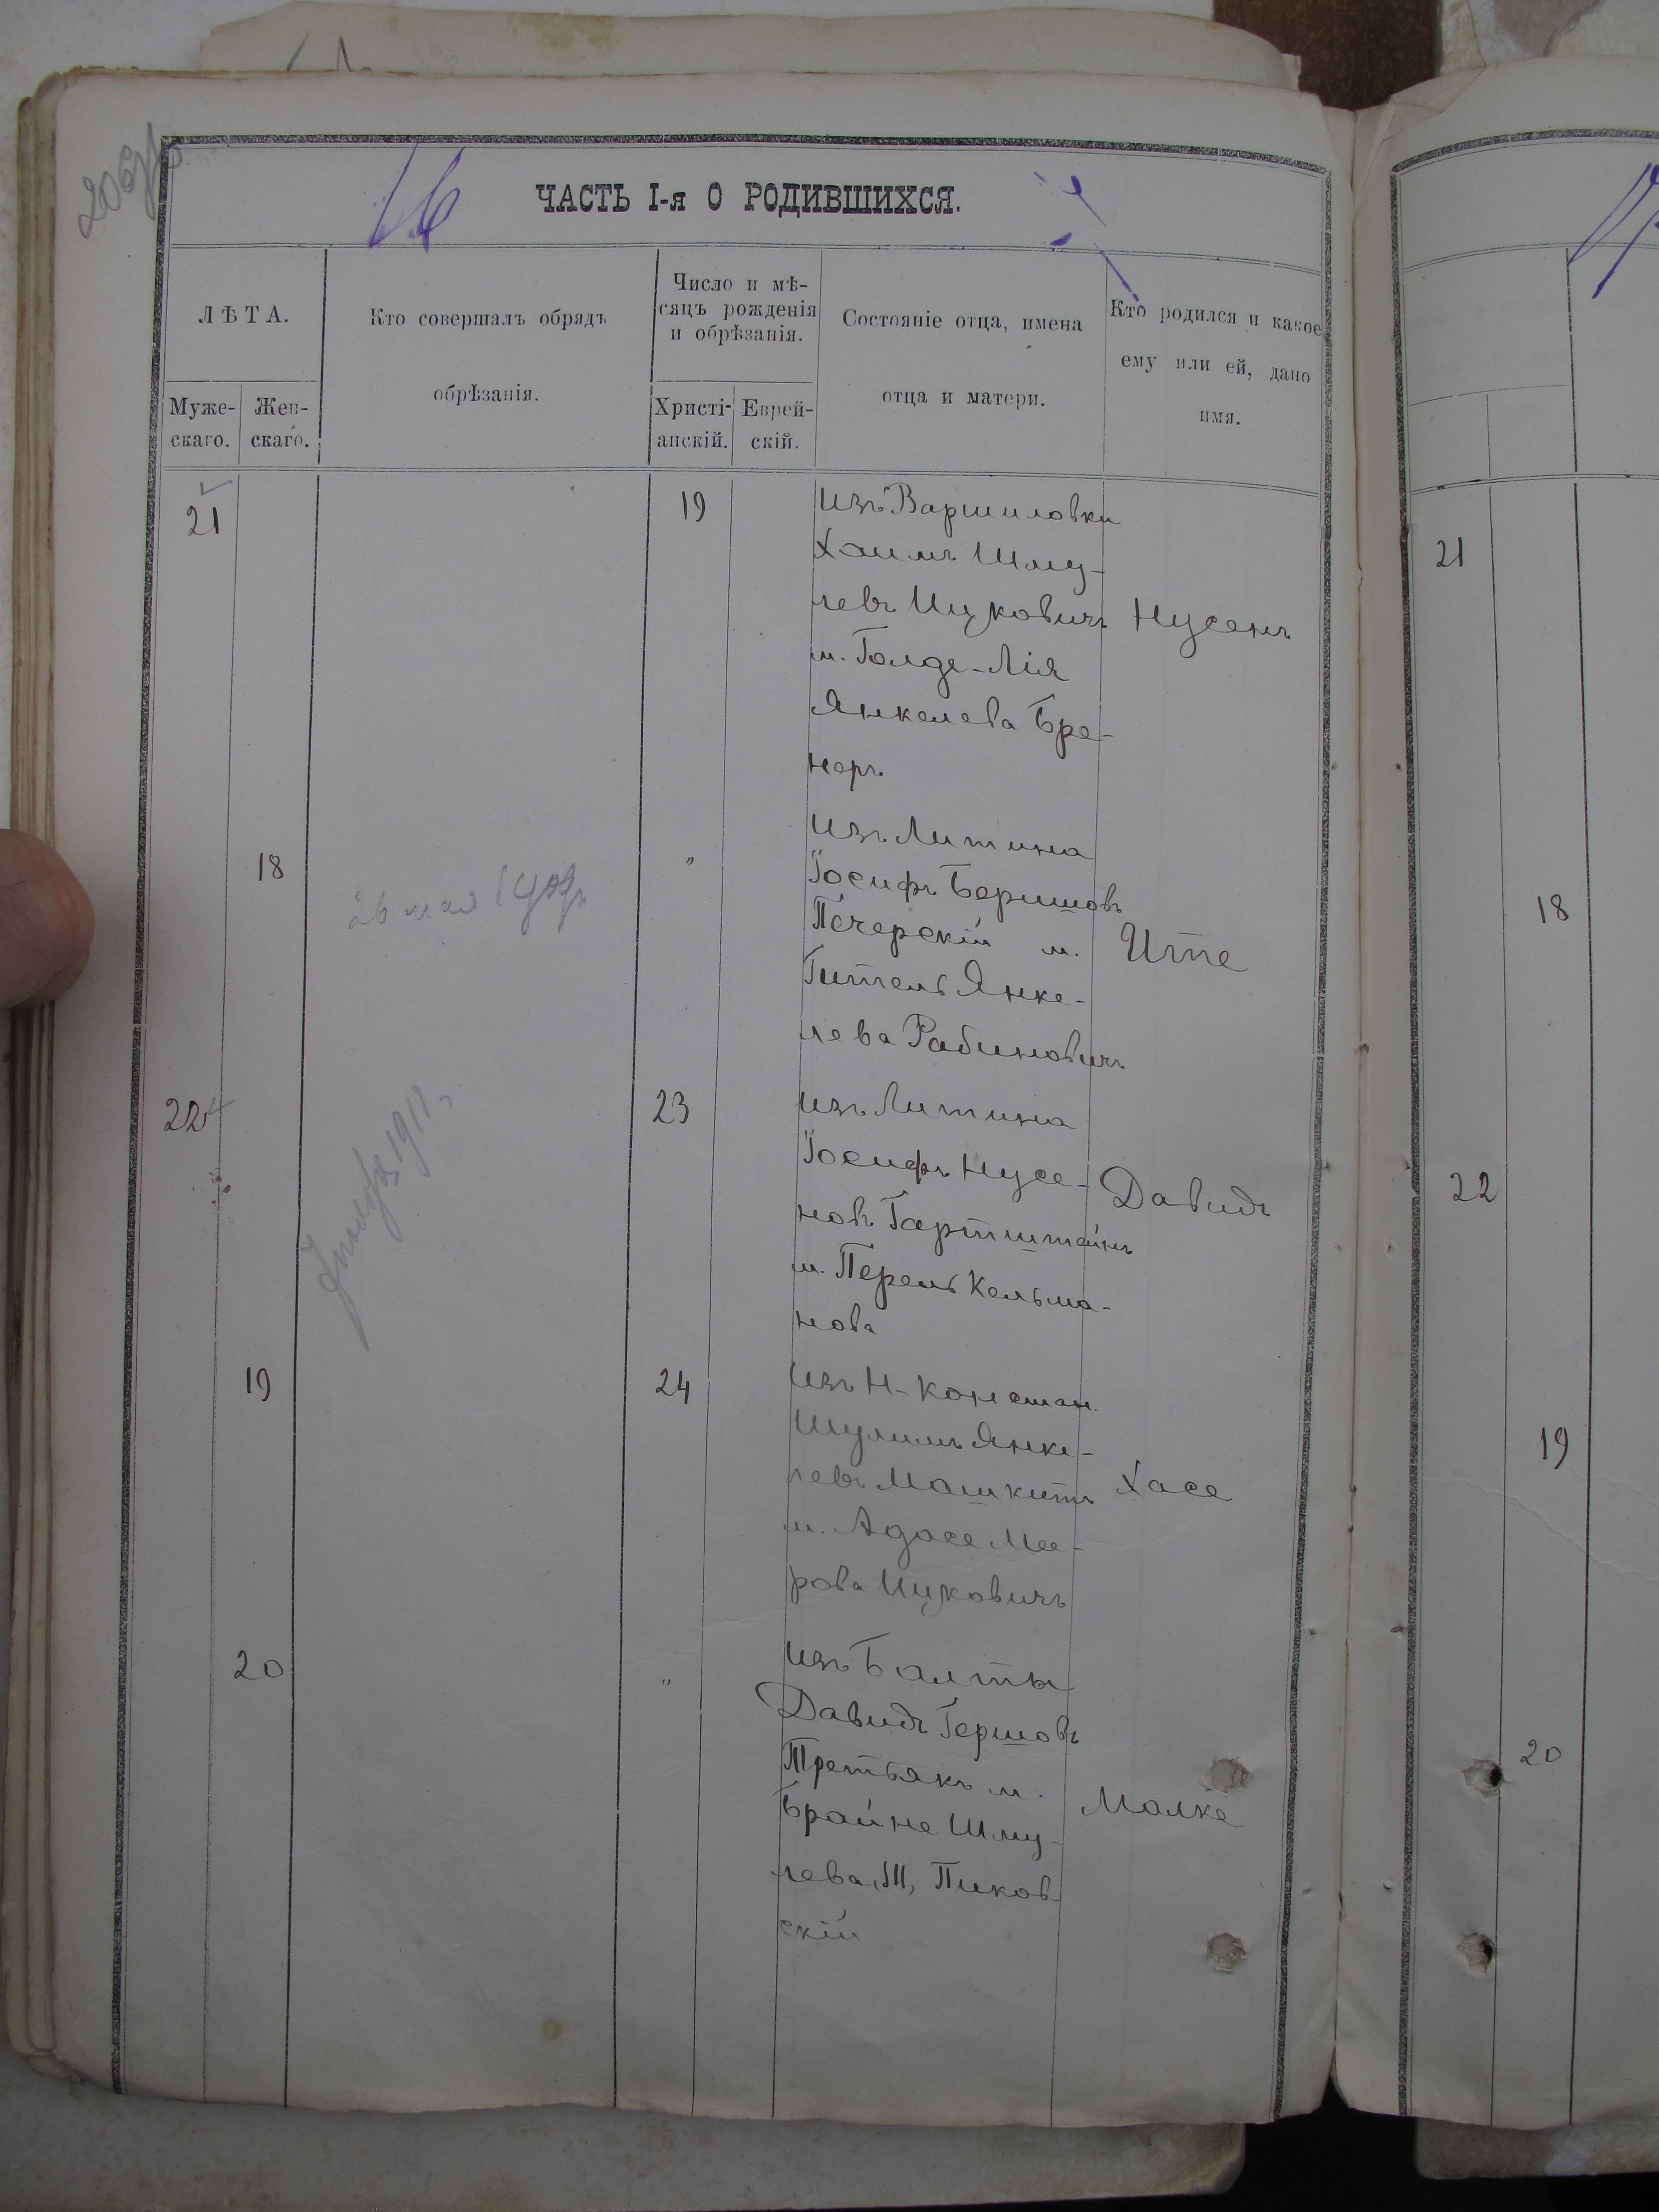 16
ЧАСТЬ I-я О РОДИВШИХСЯ.
ЛѢТА.
Муже-
скаго.
Жен-
скаго.
Кто совершалъ обрядъ
обрѣзанія.
Число и мѣ-
сяцъ рожденія
и обрѣзанія.
Христі-
анскій.
Еврей-
скій.
Состояніе отца, имена
отца и матери.
Кто родился и какое
ему или ей, дано
имя.
21
19
Изъ Варшиловки
Хаимъ Шму-
левъ Ицковичъ
м. Голде-Лія
Янкелева Бре-
неръ.
Нусенъ
21
18
"
Изъ Литина
Іосифъ Беришовъ
Печерскій м.
Гитель Янке-
лева Рабиновичъ
Ите
18
22
23
Изъ Литина
Іосифъ Нусе-
новъ Гартштейнъ
м. Перель Кельма-
нова
Давидъ
22
1911
19
24
Изъ Н-Констан.
Шулимъ Янке-
левъ Машкитъ
м. Адасе Мее-
рова Ицковичъ
Хасе
19
20
"
Изъ Балты
Давидъ Гершовъ
Третьякъ м.
Брайне Шму-
лева, Пиков-
скій
Малке
20